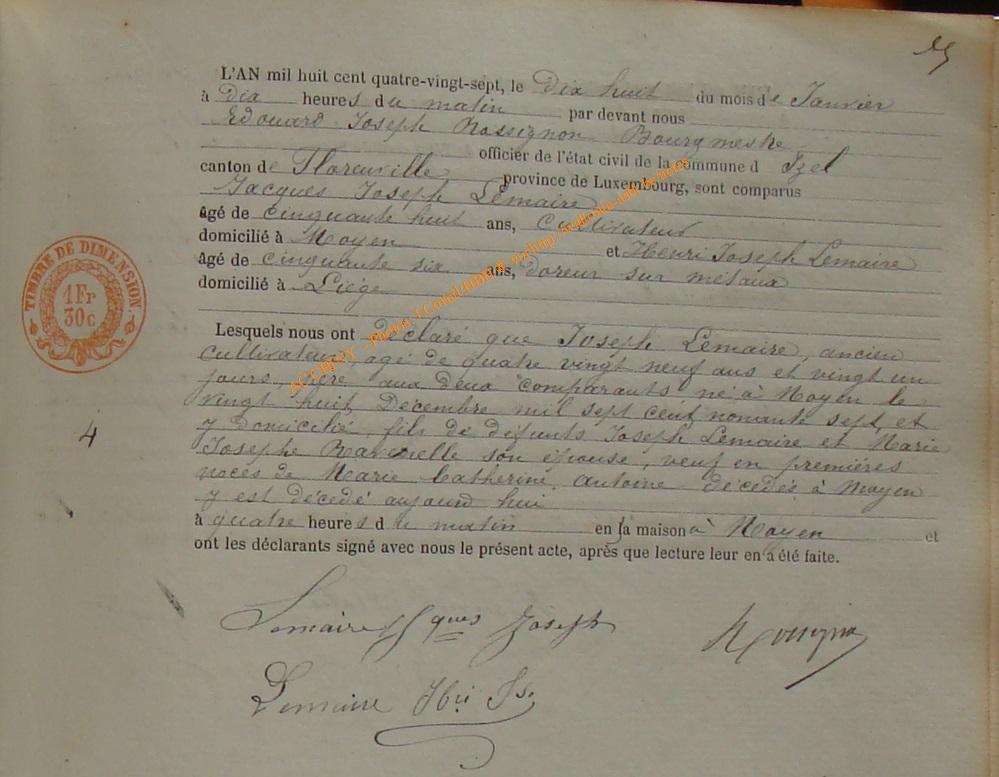 L'AN mil huit cent quatre-vingt-sept, le Dix huit du mois de Janvier
à Dix heures du matin par devant nous
Edouard Joseph Rossignon Bourgmestre
officier de l'état civil de la commune d Izel
canton de Florenville province de Luxembourg, sont comparus
Jacques Joseph Lemaire
âgé de cinquante huit ans, Cultivateur
domicilié à Moyen et Henri Joseph Lemaire
âgé de cinquante six ans, doreur sur métaux
domicilié à Liége
Lesquels nous ont déclaré que Joseph Lemaire, ancien
cultivateur, agé de quatre vingt neuf ans et vingt un
jours, père aux deux comparants né à Moyen le
vingt huit Décembre mil sept cent nonante sept, et
y domicilié, fils de défunts Joseph Lemaire et Marie
Josephe son épouse, veuf en premières
noces de Marie Catherine Antoine décédés à Moyen
y est décédé aujourd hui
à quatre heures du matin en la maison à Moyen et
ont les déclarants signé avec nous le présent acte, après que lecture leur en a été faite.
TIMBRE DE DIMENSION.
1 Fr
30 c
4
Lemaire Jques Joseph
Rossignon
Lemaire Hri Js.